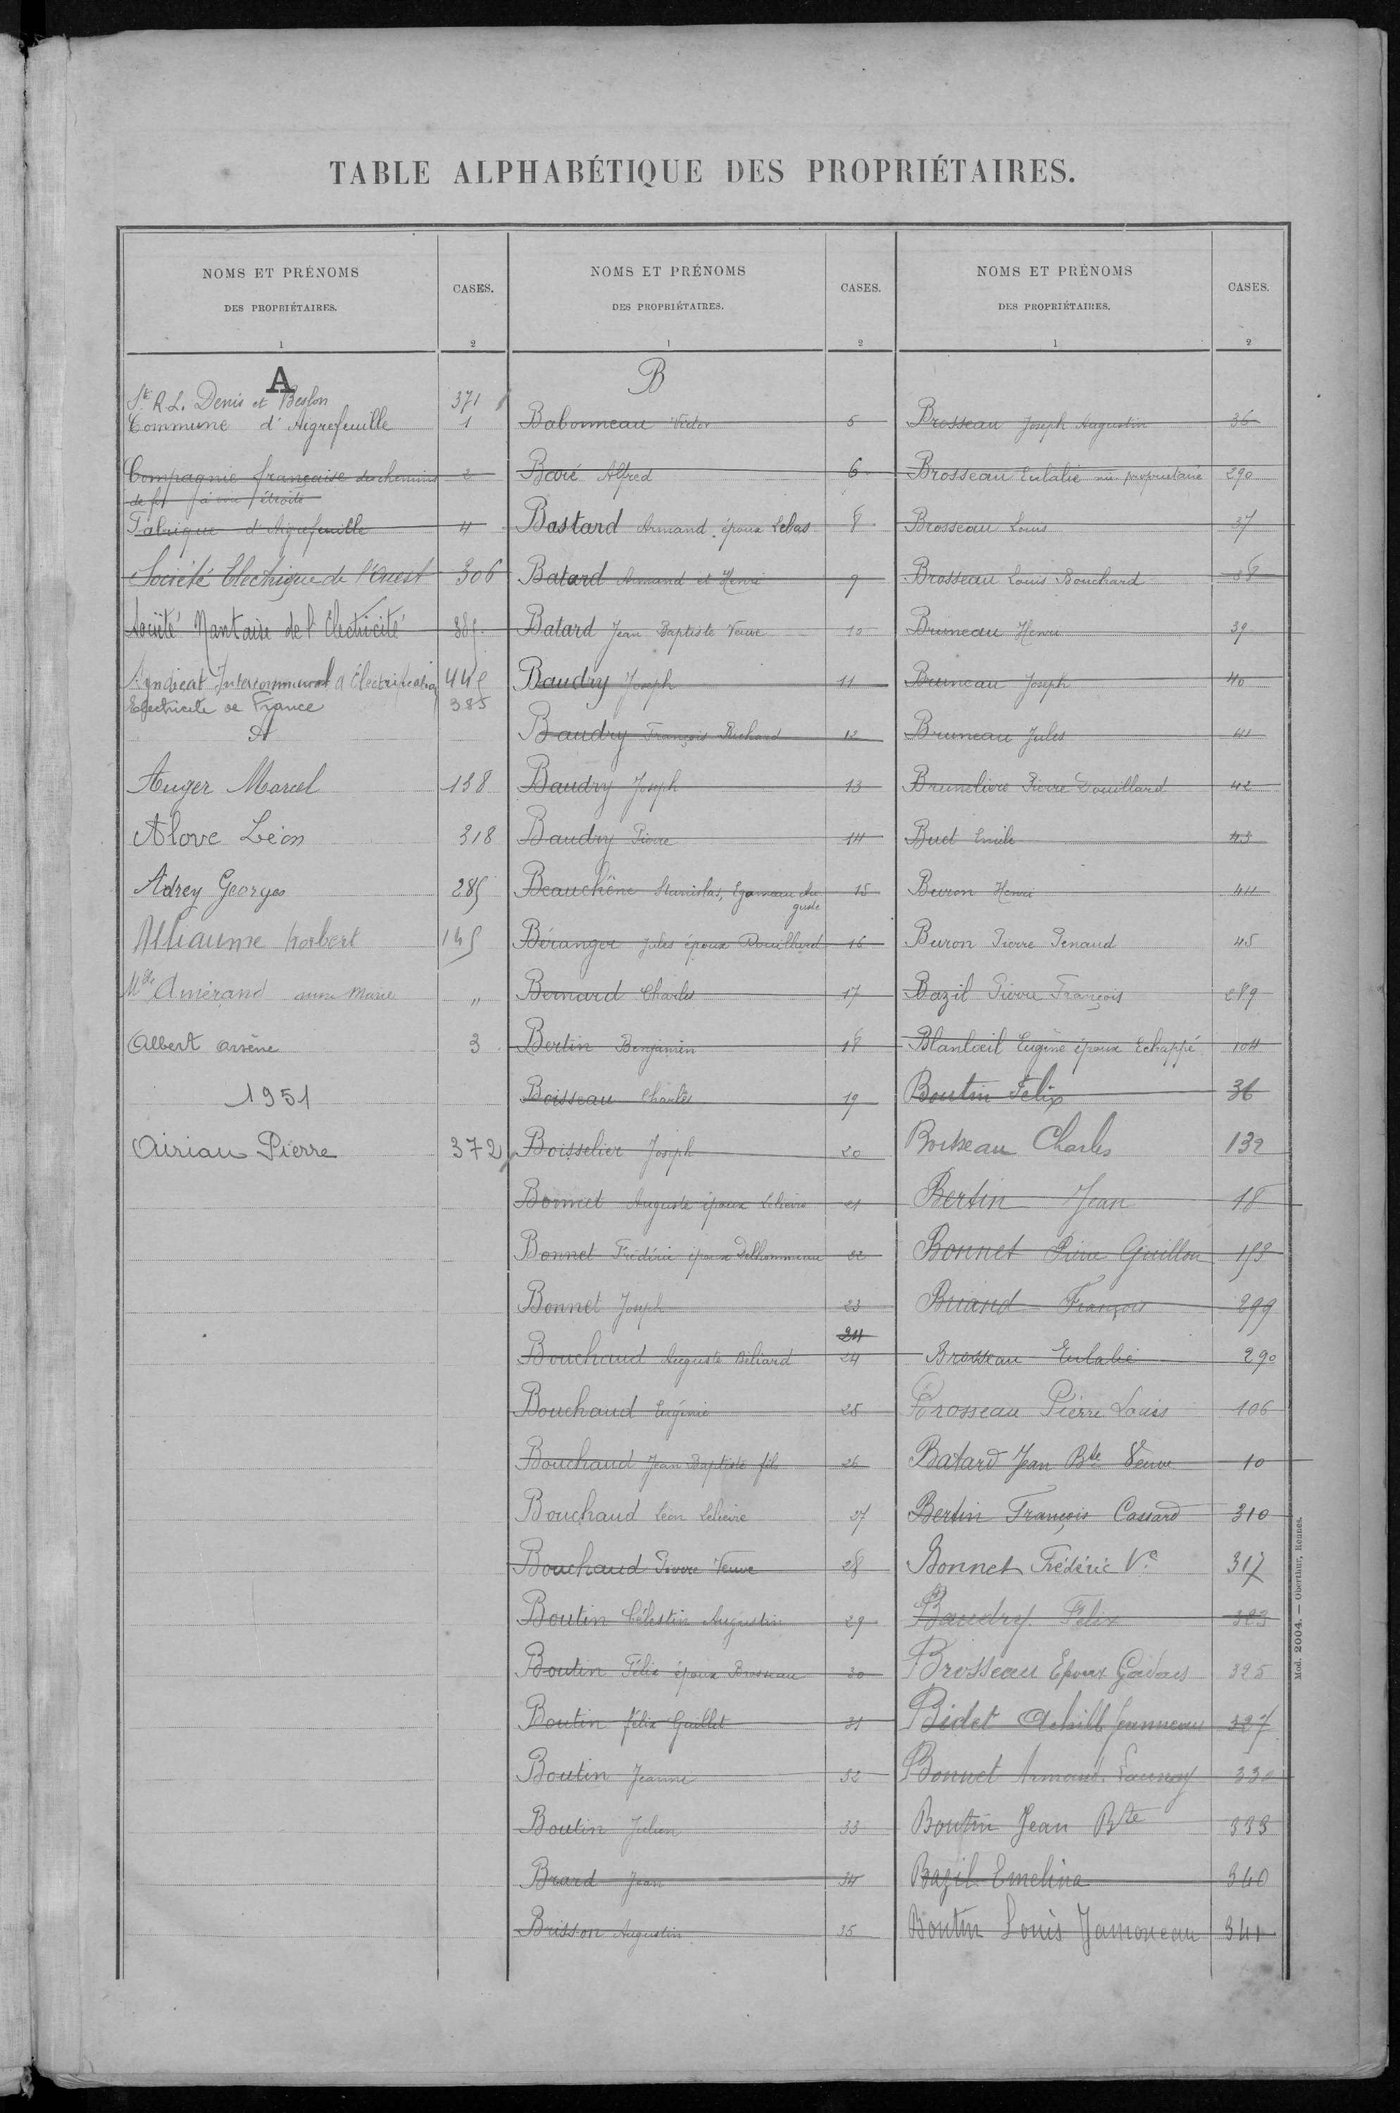 TABLE ALPHABÉTIQUE DES PROPRIÉTAIRES.
NOMS ET PRÉNOMS
DES PROPRIÉTAIRES.
CASES.
1
2
A
Sté R L. Denis et Beslon 371
Commune d'Aigrefeuille 1
Compagnie française des chemins 2
de fer à voie étroite
Fabrique d'Aigrefeuille 4
Société Electrique de l'Ouest 306
Société Nantaise de l'Electricité 385
Syndicat Intercommunal d'Electrification 445
Electricité de France 385
A
Auger Marcel 138
Alove Léon 318
Adrey Georges 285
Alliaume Norbert 145
Mlle Amérand anne Marie "
Albert arsène 3
1951
Airiau Pierre 372
NOMS ET PRÉNOMS
DES PROPRIÉTAIRES.
CASES.
1
2
B
Babonneau Victor 5
Baré Alfred 6
Bastard Armand époux Lebas 8
Batard Armand et Henri 9
Batard Jean Baptiste Veuve 10
Baudry Joseph 11
Baudry François Richard 12
Baudry Joseph 13
Baudry Pierre 14
Beauchêne Stanislas, Egonneau Au 15
guste
Béranger Jules époux Douillard 16
Bernard Charles 17
Bertin Benjamin 18
Boisseau Charles 19
Boisselier Joseph 20
Bonnet Auguste époux Lelièvre 21
Bonnet Frédéric époux Delhommeau 22
Bonnet Joseph 23
24
Bouchaud Auguste Biliard 24
Bouchaud Eugénie 25
Bouchaud Jean Baptiste fils 26
Bouchaud Léon Lelièvre 27
Bouchaud Pierre Veuve 28
Boutin Célestin Augustin 29
Boutin Félix époux Brosseau 30
Boutin félix Guillet 31
Boutin Jeanne 32
Boutin Julien 33
Brard Jean 34
Brisson Augustin 35
NOMS ET PRÉNOMS
DES PROPRIÉTAIRES.
CASES.
1
2
Brosseau Joseph Augustin 36
Brosseau Eulalie nu propriétaire 290
Brosseau Louis 37
Brosseau Louis Bouchard 38
Bruneau Henri 39
Bruneau Joseph 40
Bruneau Jules 41
Brunelière Pierre Douillard 42
Buet Emile 43
Buron Henri 44
Buron Pierre Renaud 45
Bazil Pierre François 289
Blanloeil Eugène époux Echappé 104
Boutin Félix 36
Boisseau Charles 132
Bertin Jean 18
Bonnet Pierre Guillou 153
Briand François 299
Brosseau Eulalie 290
Brosseau Pierre Louis 106
Batard Jean Bte Veuve 10
Bertin François Cassard 310
Bonnet Frédéric Ve 317
Baudry Félix 323
Brosseau Epoux Gadais 325
Bidet Achille Jeanneau 327
Bonnet Armand Launay 330
Boutin Jean Bte 333
Bazil Emelina 340
Boutin Louis Jamoneau 341
Mod. 2004. — Oberthur, Rennes.